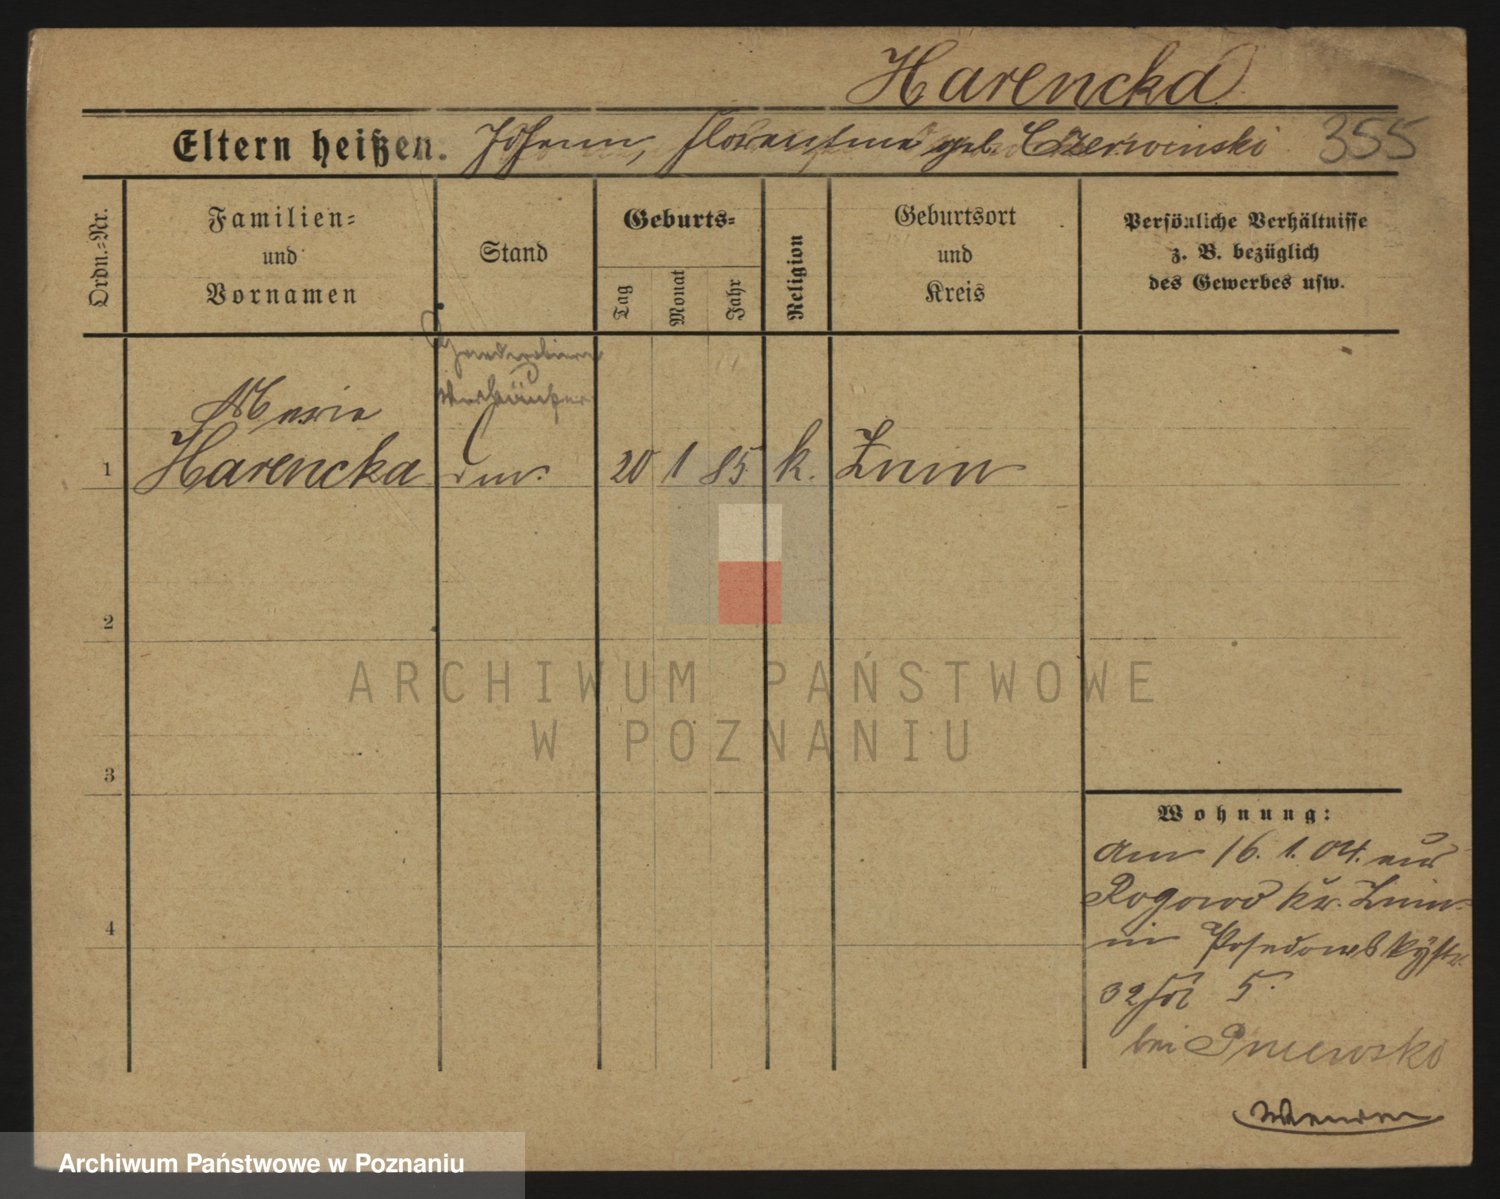 Harencka
Eltern heißen. Johann, Florentine geb. Czerwinski 355
Ordn.=Nr.
Familien=
und
Vornamen
Stand
Geburts=
Tag
Monat
Jahr
Religion
Geburtsort
und
Kreis
Persönliche Verhältnisse
z. B. bezüglich
des Gewerbes usw.
Verkäufer
Marie
1 Harencka 20 1 85 k. Znin
2
3
4
Wohnung:
Am 16. 1. 04. aus
Rogowo Kr. Znin
in Posadowskystr.
32 5.
bei Pniewski
Wenden
ARCHIWUM PAŃSTWOWE
W POZNANIU
Archiwum Państwowe w Poznaniu